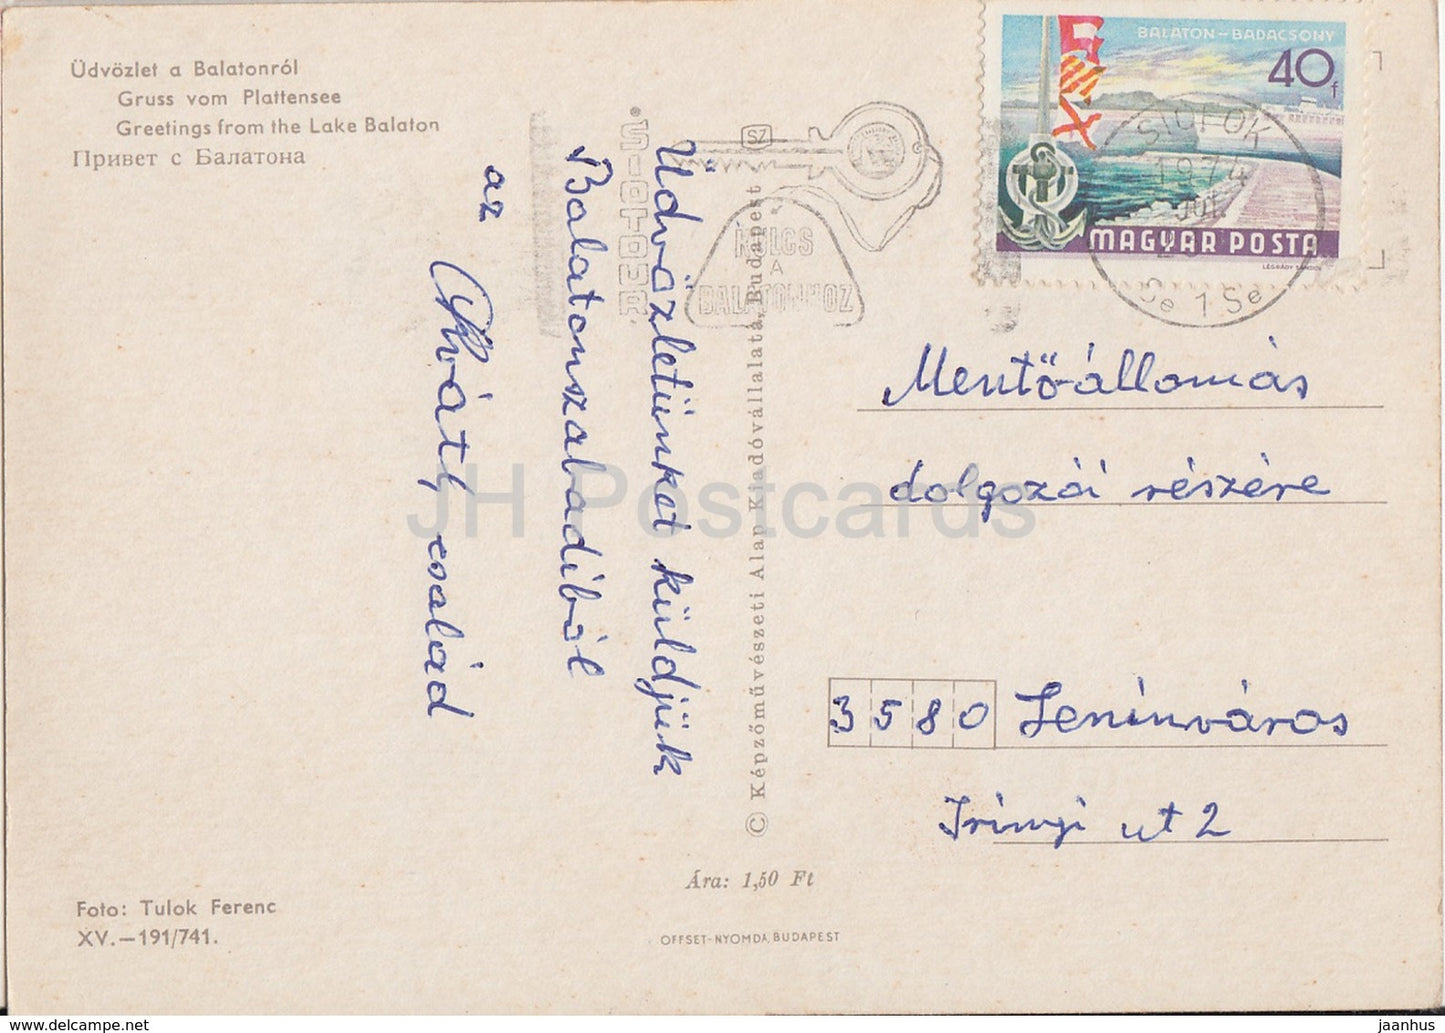 Üdvözlet a Balatonról
Gruss vom Plattensee
Greetings from the Lake Balaton
Привет с Балатона
BALATON–BADACSONY
40f
MAGYAR POSTA
LÉGRÁDY SÁNDOR
SIÓFOK
1974
JUL.
Se 1 Se
SZ
KULCS
A
BALATONHOZ
SIOTOUR
Üdvözletünket küldjük
Balatonszabadiból
az
család
Mentőállomás
dolgozói részére
3580 Leninváros
Irinyi ut 2
© Képzőművészeti Alap Kiadóvállalata, Budapest
Ára: 1,50 Ft
Foto: Tulok Ferenc
XV.—191/741.
OFFSET-NYOMDA, BUDAPEST
JH Postcards
www.delcampe.net
jaanhus